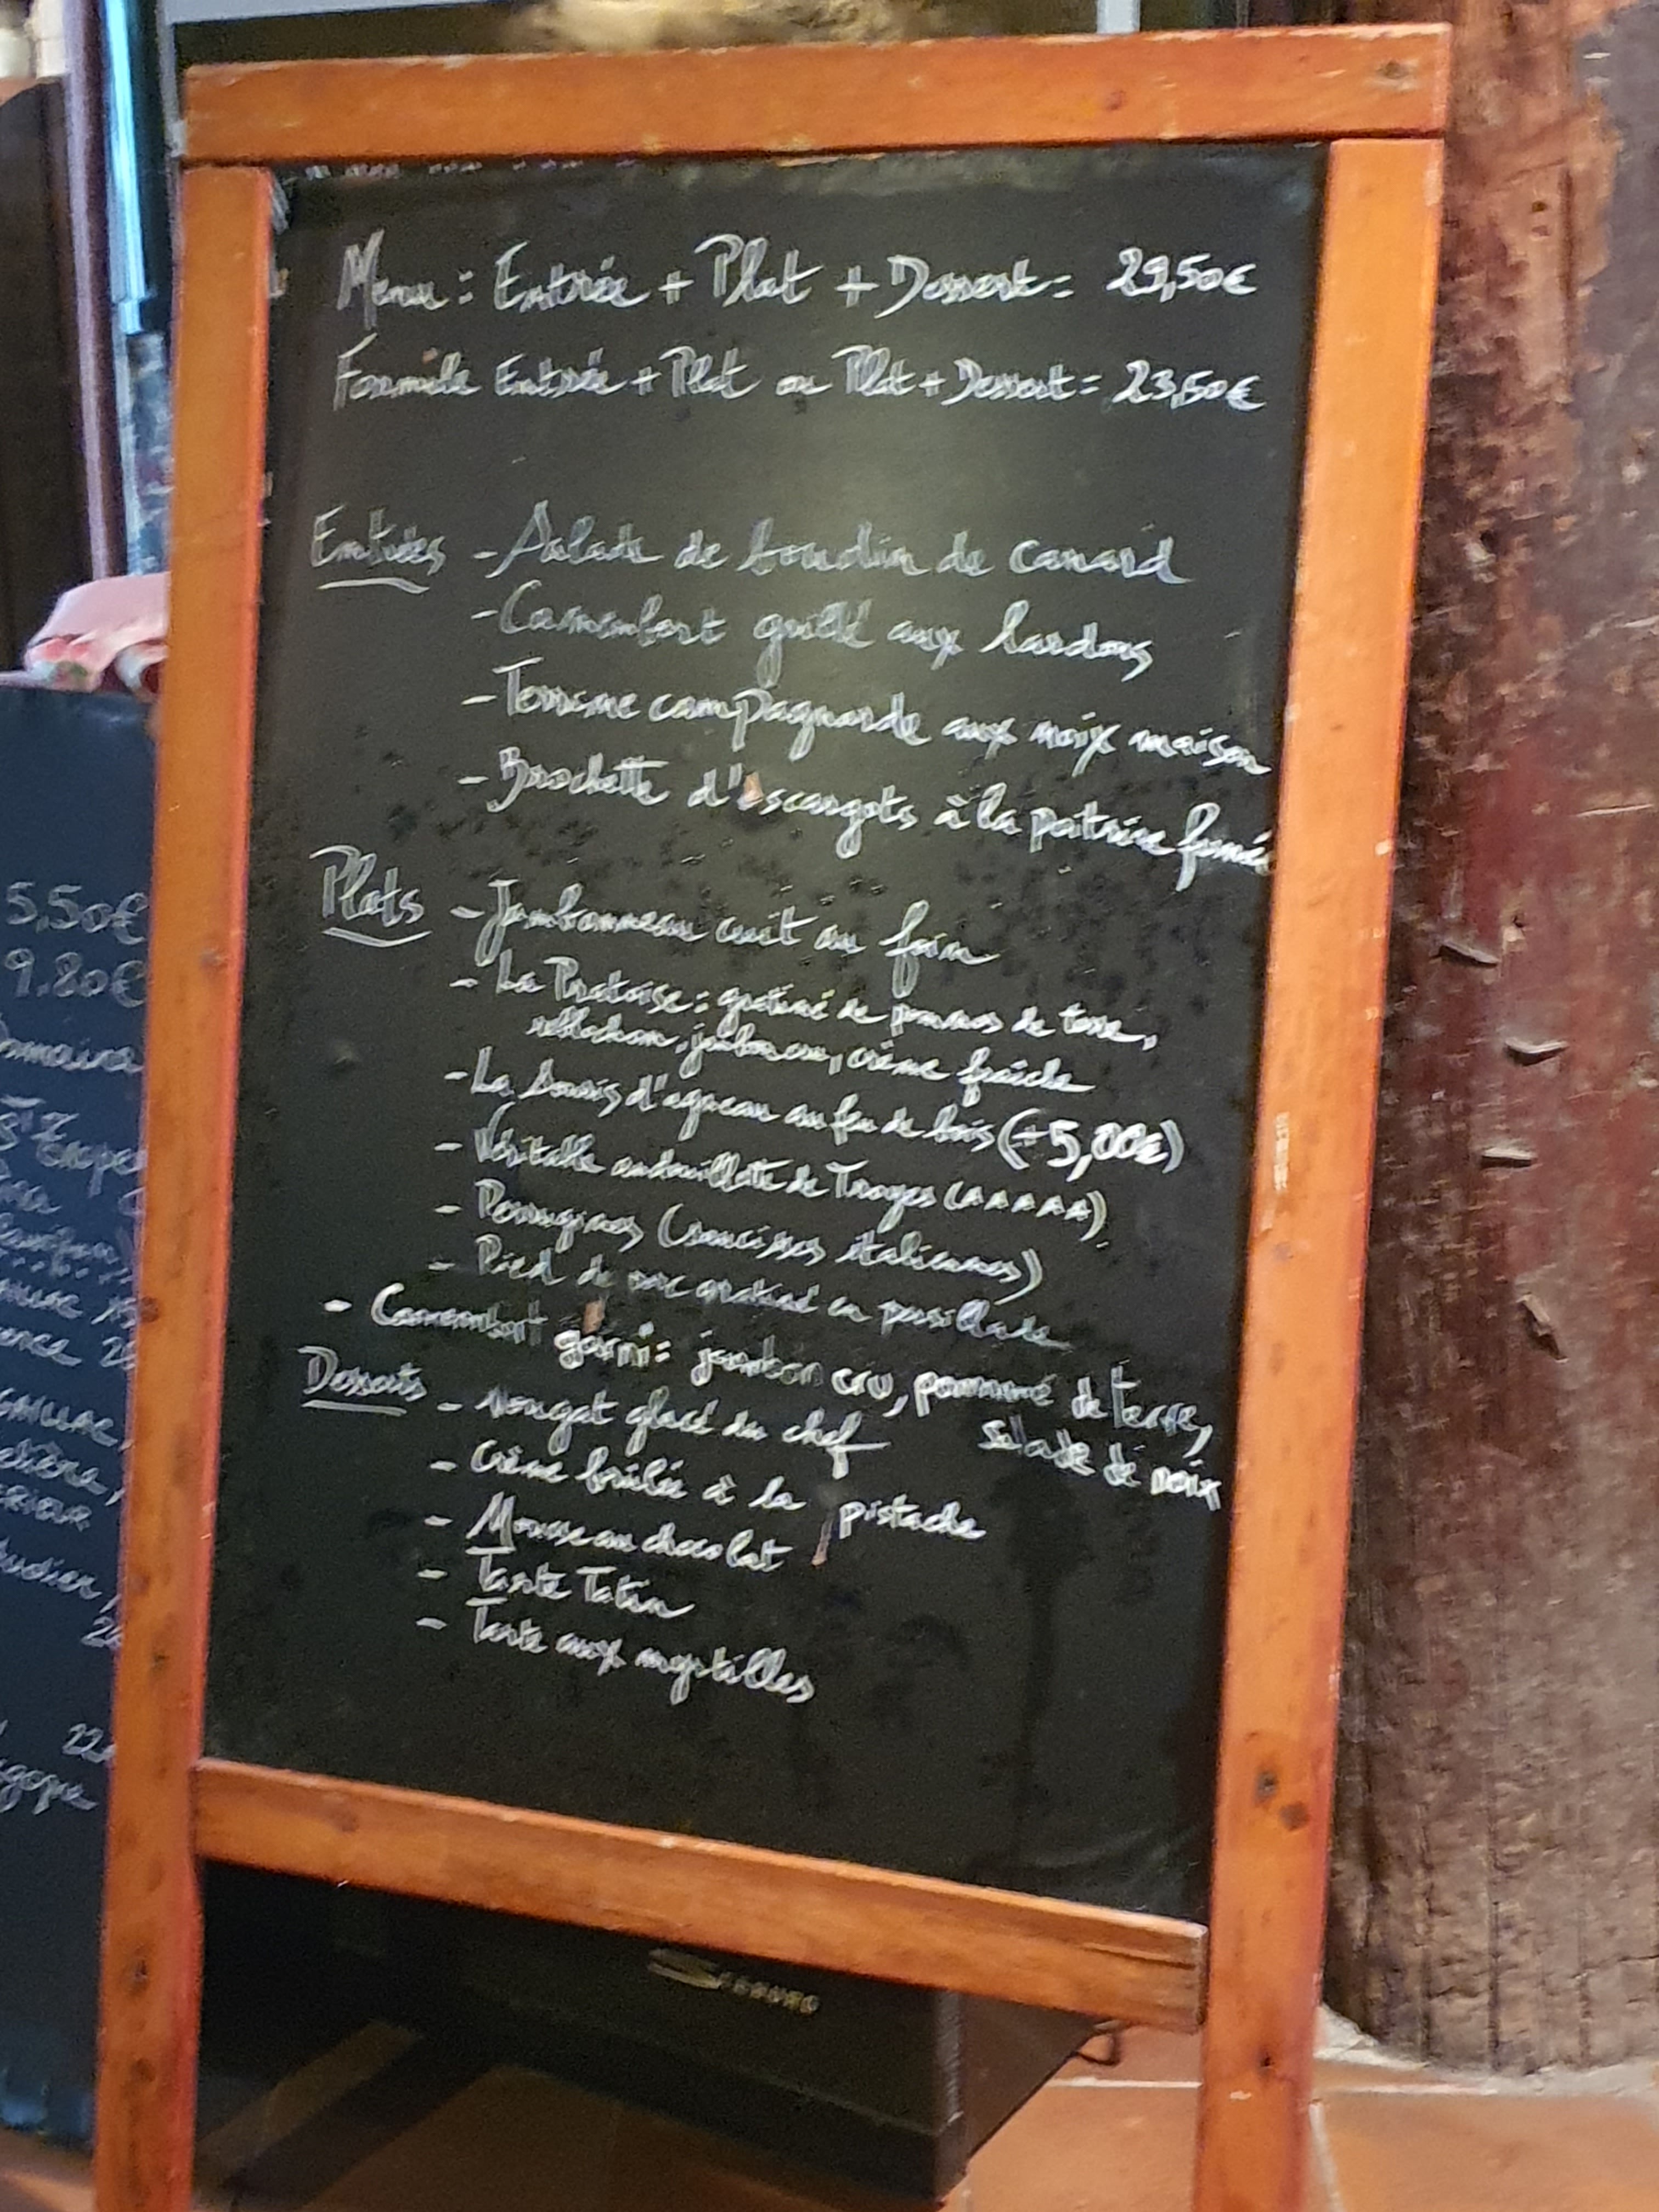 Menu : Entrée + Plat + Dessert = 29,50€
Formule Entrée + Plat ou Plat + Dessert = 23,50€
Entrées - Salade de boudin de canard
- Camembert grillé aux lardons
- Terrine campagnarde aux noix maison
- Brochette d'escargots à la poitrine fumée
Plats - Jambonneau cuit au foin
- La : gratiné de pommes de terre,
reblochon, jambon cru, crème fraîche
- La Souris d'agneau au feu de bois (+5,00€)
- Véritable andouillette de Troyes (AAAAA)
- Perugines (saucisses italiennes)
- Pied de porc gratiné en persillade
- Camembert garni : jambon cru, pomme de terre,
salade de noix
Desserts - Nougat glacé du chef
- Crème brûlée à la pistache
- Mousse au chocolat
- Tarte Tatin
- Tarte aux myrtilles
5,50€
9.80€